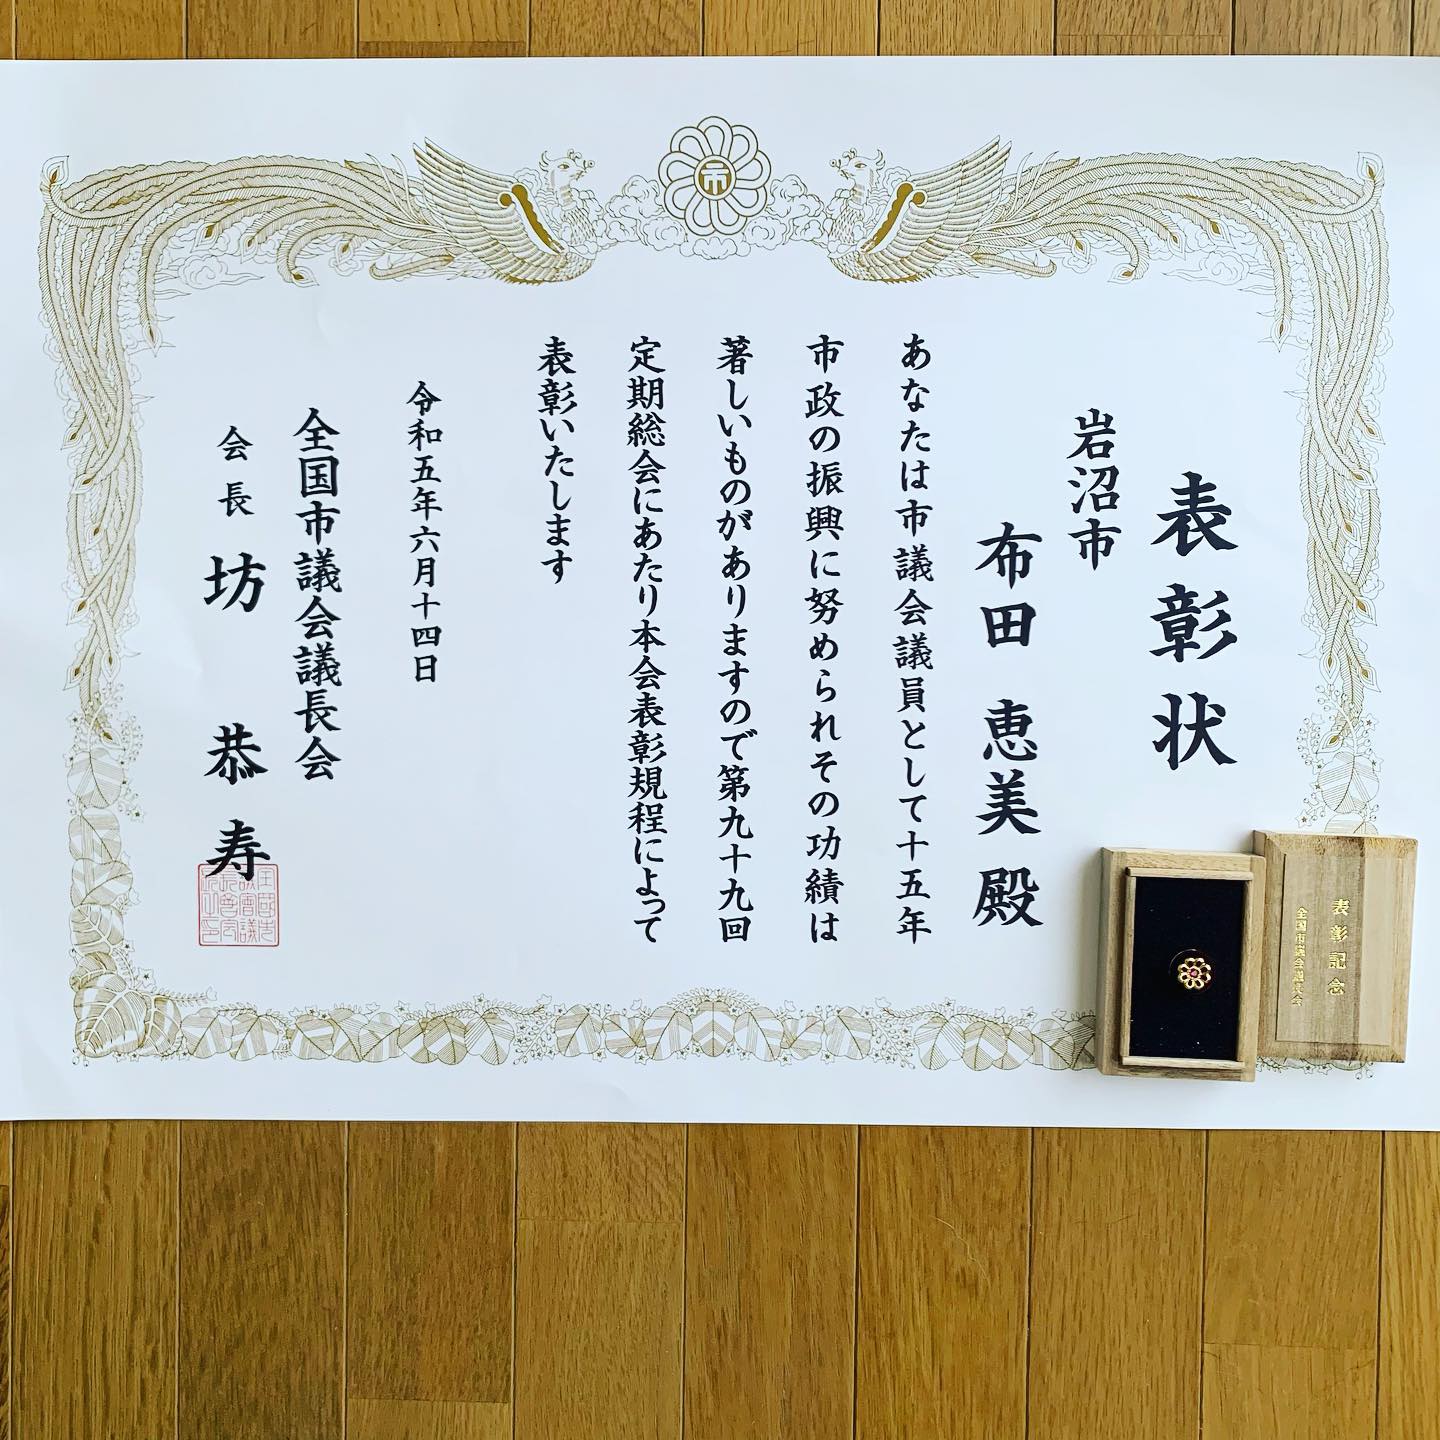 表彰状
岩沼市
布田恵美殿
あなたは市議会議員として十五年
市政の振興に努められその功績は
著しいものがありますので第九十九回
定期総会にあたり本会表彰規程によって
表彰いたします
令和五年六月十四日
全国市議会議長会
会長 坊恭寿
市
表彰記念
全国市議会議長会